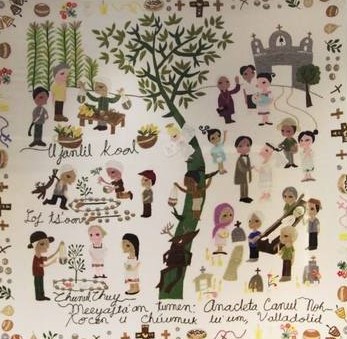 U janlil kool
Loj ts'oon
Chunul Che
Meeyajta'an tumen: Anacleta Canul Noh
Xocén u Chúumuk lu'um, Valladolid